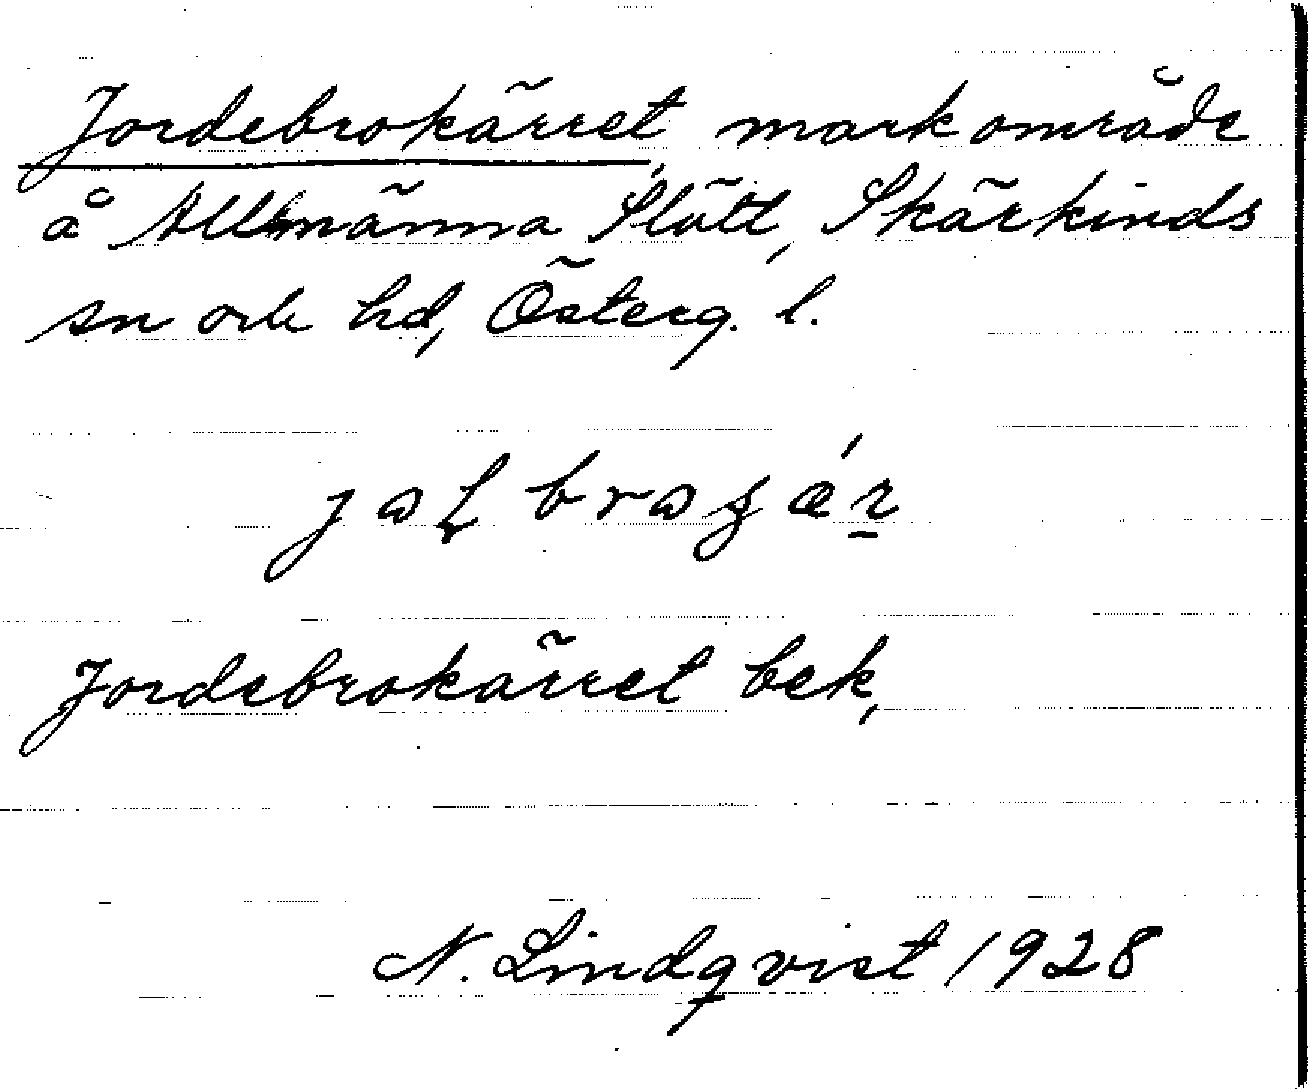 Jordebrokärret, markområde
å Allmänna Slätt, Skärkinds
sn och hd, Österg. l.
Jordebrokärret bek,
N. Lindqvist 1928